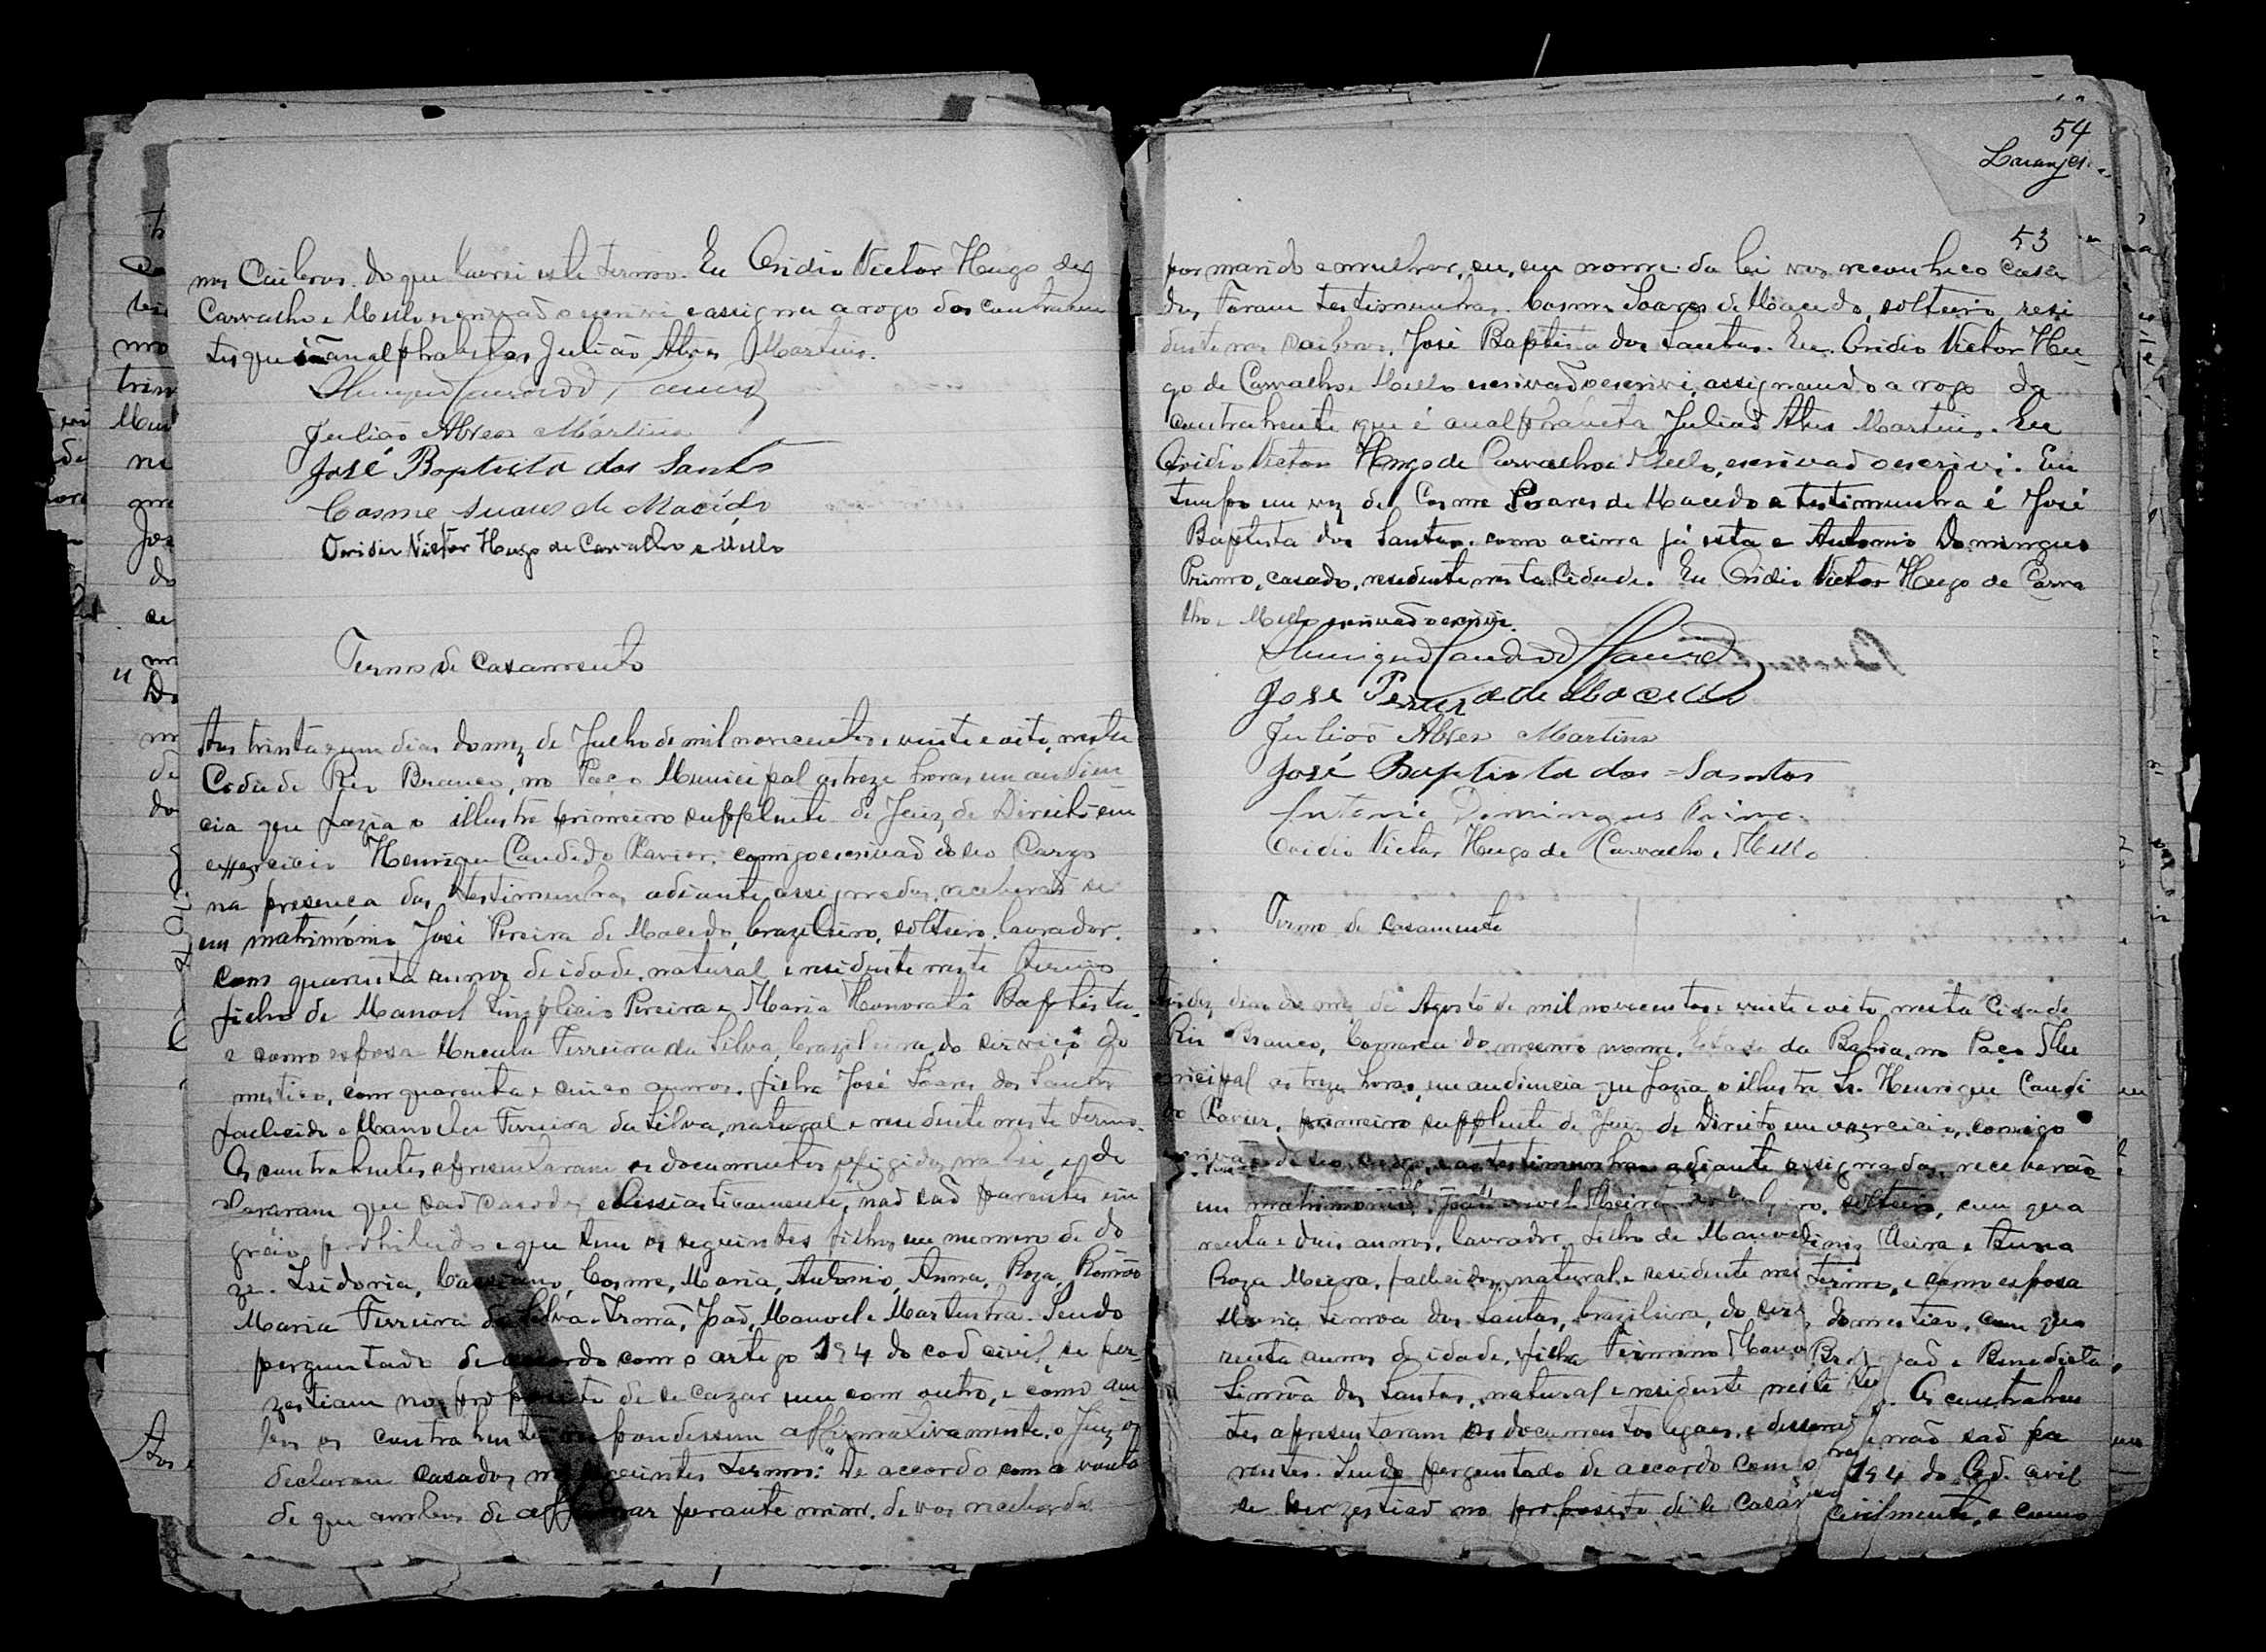 nas Caibras. do que lavrei este termo. Eu Ovidio Victor Hugo de
Carvalho e Mello escrivaõ o escrivi e assigna a rogo dos contrahen
tes que saõ analphabetos Juliaõ Alves Martins.
Henrique Candido Xavier
Julião Alves Martins
José Baptista dos Santos
Cosme Suares de Macêdo
Ovidio Victor Hugo de Carvalho e Mello
Termo de casamento
Aos trinta e um dias do mez de Julho de mil novecentos e vinte e oito, nesta
Cidade Rio Branco, no Paço Municipal as treze horas em audien
cia que fazia o illustre primeiro supplente de Juiz de Direito em
exercicio Henrique Candido Xavier, comigo escrivaõ do seo Cargo
na presença das testimunhas adiante assignadas, receberaõ se
em matrimónio José Pereira de Macedo, brazileiro, solteiro, lavrador.
com quarenta annos de idade, natural e residente neste termo
filho de Manoel Simplicio Pereira e Maria Honorata Baptista
e como esposa Urcula Ferreira da Silva, brazileira, do serviço do
mestico, com quarenta e cinco annos. filha José Soares dos Santos
falecido e Manoela Ferreira da Silva, natural e residente neste termo.
Os contrahentes apresentaram os documentos exigidos na lei, e de
clararam que saõ casados eclesiasticamente, naõ saõ parentes em
gráo prohibido e que tem os seguintes filhos em numero de do
ze. Isidoria, Cosme, Maria, Antonio, Anna, Roza, Romão
Maria Ferreira da Silva Irmã, Joaõ, Manoel e Martinha. Sendo
perguntado de accordo com o artigo 194 do cod civil, se per-
zestiam no proposito de se cazar um com outro, e como am
bos os contrahentes respondessem affirmativamente, o Juiz os
declarou casados, nos seguintes termos: "De accordo com a vontade
de que ambos de affirmar perante mim. de vos receberdes
54
Laranjei
53
por marido e mulher, eu, em nome da lei vos reconheco casa
dos Foram testimunhas. Cosme Soares de Macedo, solteiro, resi
dente nas Caibras, José Baptista dos Santos. Eu Ovidio Victor Hu-
go de Carvalho e Mello escrivaõ o escrivi, assignando a rogo da
contrahente que é analphabeta Juliaõ Alves Martins. Eu
Ovidio Victor Hugo de Carvalho e Mello, escrivaõ o escrivi. Em
tempo em vez de Cosme Soares de Macedo a testimunha é José
Baptista dos Santos. como acima já esta e Antonio Domingues
Primo, casado, residente nesta Cidade. Eu Ovidio Victor Hugo de Carva
lho e Mello escrivaõ o escrivi.
Henrique Candido Xavier
José Pereira de Macedo
Julioõ Alves Martins
José Baptista dos Santos
Antonio Domingues Primo.
Ovidio Victor Hugo de Carvalho e Mello
Termo de casamento
dias do mez de Agosto de mil novecentos e vinte e oito nesta Cidade
Rio Branco, Comarca do mesmo nome, Estado da Bahia, no Paço Mu
nicipal as treze horas, em audiencia que fazia o illustre Sr. Henrique Candi
do Xavier, primeiro supplente de Juiz de Direito em exercicio, comigo
escrivaõ de seo cargo, e as testimunhas adiante assignadas, receberão
em matrimonio, Joaõ Manoel Meira, brazileiro, solteiro, com qua
renta e dois annos, lavrador, filho de Manoel Diniz Meira e Anna
Roza Meira, falecidos, natural e residente neste termo, e como esposa
Maria Simôa dos Santos, brazileira, do serviço domestico, com qua
renta annos de idade, filha Firmino Manoel e Benedicta
Simôa dos Santos, natural e residente neste termo. Os contrahen
tes apresentaram os documentos legaes, e disseram que naõ saõ pa
rentes. Sendo perguntado de accordo com o 194 do Cod. civil
se perzestiaõ no proposito de se casar civilmente, e como